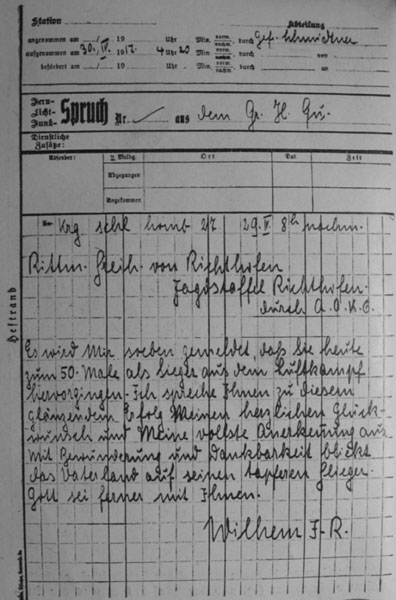 Station
Abteilung
angenommen am / 19 Uhr Min. vorm. nachm. durch Gef. Schmidtner
aufgenommen am 30. IV. 1917. 4 Uhr 20 Min. vorm. nachm. durch von
befördert am / 19 Uhr Min. vorm. nachm. durch an
Fern-
Licht-
Funk-
Spruch Nr. aus dem Gr. H. Qu.
Dienstliche
Zusätze:
Absender: Meldg. Ort Dat. Zeit
Abgegangen
Angekommen
An
schl homb 2/7 29. IV. 8 h nachm.
Rittm. Freih. von Richthofen
Jagdstaffel Richthofen.
durch A.O.K.6.
Es wird Mir soeben gemeldet, daß Sie heute
zum 50. Male als Sieger aus dem Luftkampf
hervorgingen. Ich spreche Ihnen zu diesem
glänzendem Erfolg Meinen herzlichen Glück-
wunsch und Meine vollste Anerkennung aus.
Mit Bewunderung und Dankbarkeit blickt
das Vaterland auf seinen tapferen Flieger.
Gott sei ferner mit Ihnen.
Wilhem I. R.
Heftrand